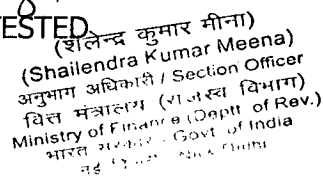 TESTED
(शैलेन्द्र कुमार मीना)
(Shailendra Kumar Meena)
अनुभाग अधिकारी / Section Officer
वित्त मंत्रालय (राजस्व विभाग)
Ministry of Finance (Deptt. of Rev.)
भारत सरकार Govt. of India
नई Delhi